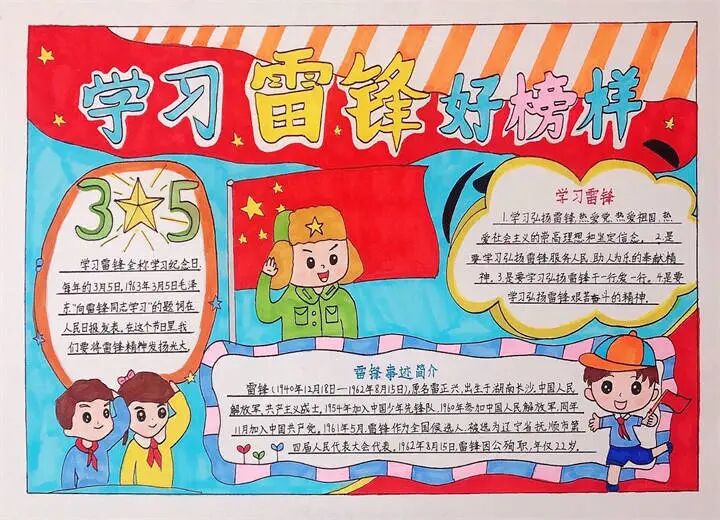 学习雷锋好榜样
3 5
学习雷锋 全称学习纪念日
每年的3月5日,1963年3月5日毛泽
东"向雷锋同志学习"的题词在
人民日报发表,在这个节日里我
们要将雷锋精神发扬光大
学习雷锋
1.学习弘扬雷锋,热爱党,热爱祖国,热
爱社会主义的崇高理想和坚定信念。2.是
要学习弘扬雷锋服务人民,助人为乐的奉献精
神。3.是要学习弘扬雷锋干一行爱一行。4.是要
学习弘扬雷锋艰苦奋斗的精神.
雷锋事迹简介
雷锋(1940年12月18日—1962年8月15日),原名雷正兴,出生于湖南长沙,中国人民
解放军,共产主义战士,1954年加入中国少年先锋队,1960年参加中国人民解放军,同年
11月加入中国共产党。1961年5月,雷锋作为全国候选人,被选为辽宁省抚顺市第
四届人民代表大会代表。1962年8月15日,雷锋因公殉职,年仅22岁。